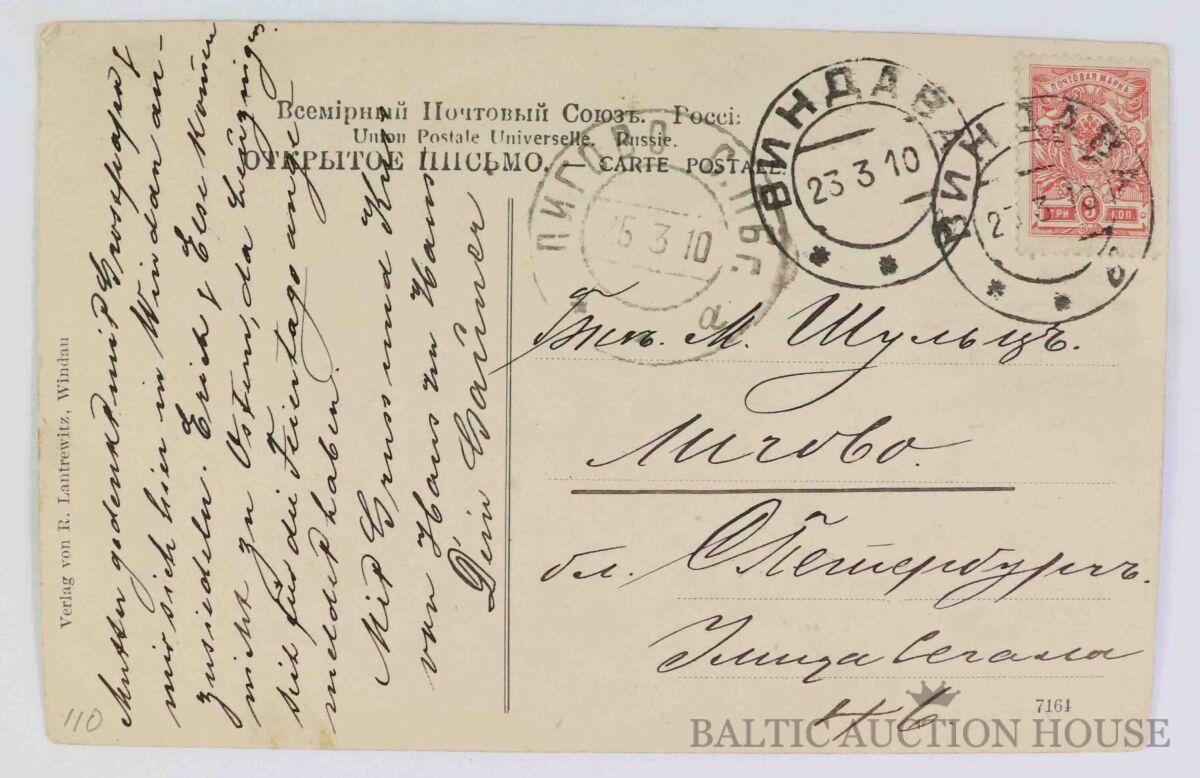 Всемірный Почтовый Союзъ. Россі:
Union Postale Universelle. Russie.
ОТКРЫТОЕ ПИСЬМО. — CARTE POSTALE.
ВИНДАВА
23 3 10
ВИНДАВА
3 10
ЛИГОВО С.ПБГ.
25 3 10
а
ПОЧТОВАЯ МАРКА
ТРИ 3 КОП
М. Шульцъ.
Лигово.
бл. СПетербургъ.
Улица Сегала
46
Mutter gedenkt mit Grosspapa &
mir sich hier in Windau an-
zusiedeln. Erich & Else kommen
nicht zu Ostern, da
sich für die Feiertage
meldet haben.
Mit Gruss und Kuss
von Haus zu Haus
Dein
Verlag von R. Lantrewitz, Windau
110
7164
BALTIC AUCTION HOUSE